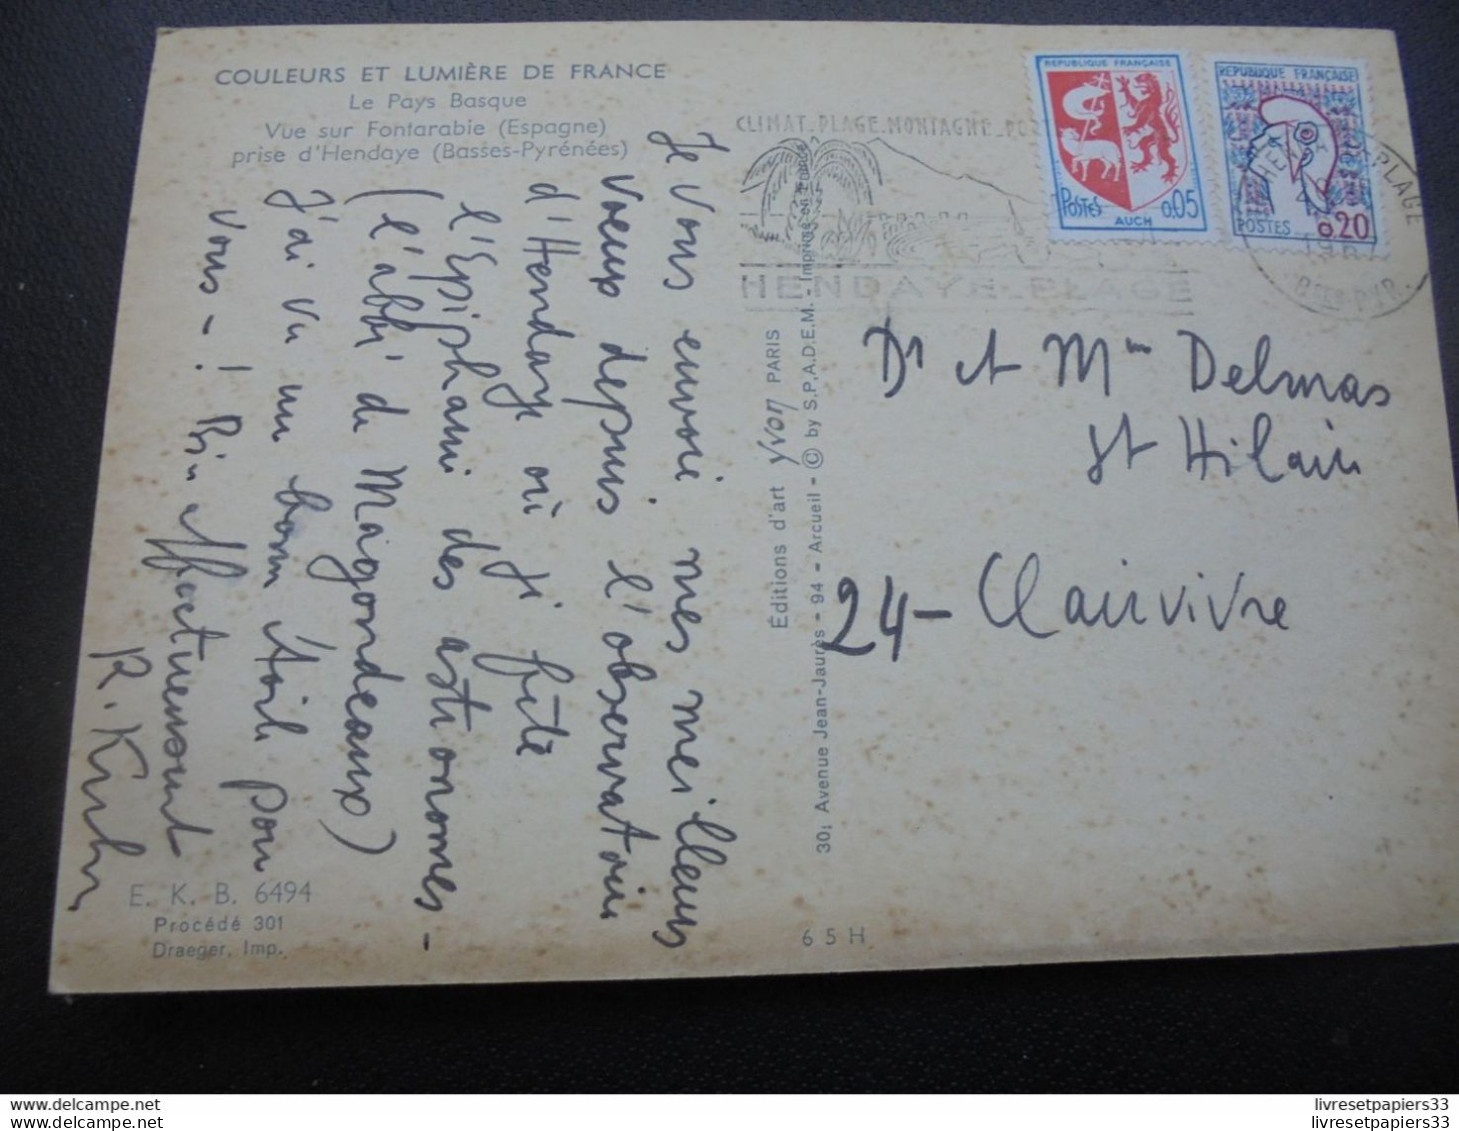 COULEURS ET LUMIÈRE DE FRANCE
Le Pays Basque
Vue sur Fontarabie (Espagne)
prise d'Hendaye (Basses-Pyrénées)
Je vous envoie mes meilleurs
voeux depuis l'observatoire
d'Hendaye où j'ai fêté
l'Epiphanie des astronomes -
(l'abbé de Maigondeaux)
J'ai vu un borm pour
vous - ! Bien affectueusement
R. Kuhn
E. K. B. 6494
Procédé 301
Draeger, Imp.
Éditions d'art yvon PARIS
30, Avenue Jean-Jaurès - 94 - Arcueil - © by S.P.A.D.E.M. - Imprimé en France
65H
CLIMAT_PLAGE_MONTAGNE_
HENDAYE-PLAGE
REPUBLIQUE FRANÇAISE
POSTES
AUCH
0.05
REPUBLIQUE FRANCAISE
POSTES
0.20
PLAGE
Dr et Mme Delmas
St Hilaire
24 - Clairvivre
livresetpapiers33
livresetpapiers33
livresetpapiers33
livresetpapiers33